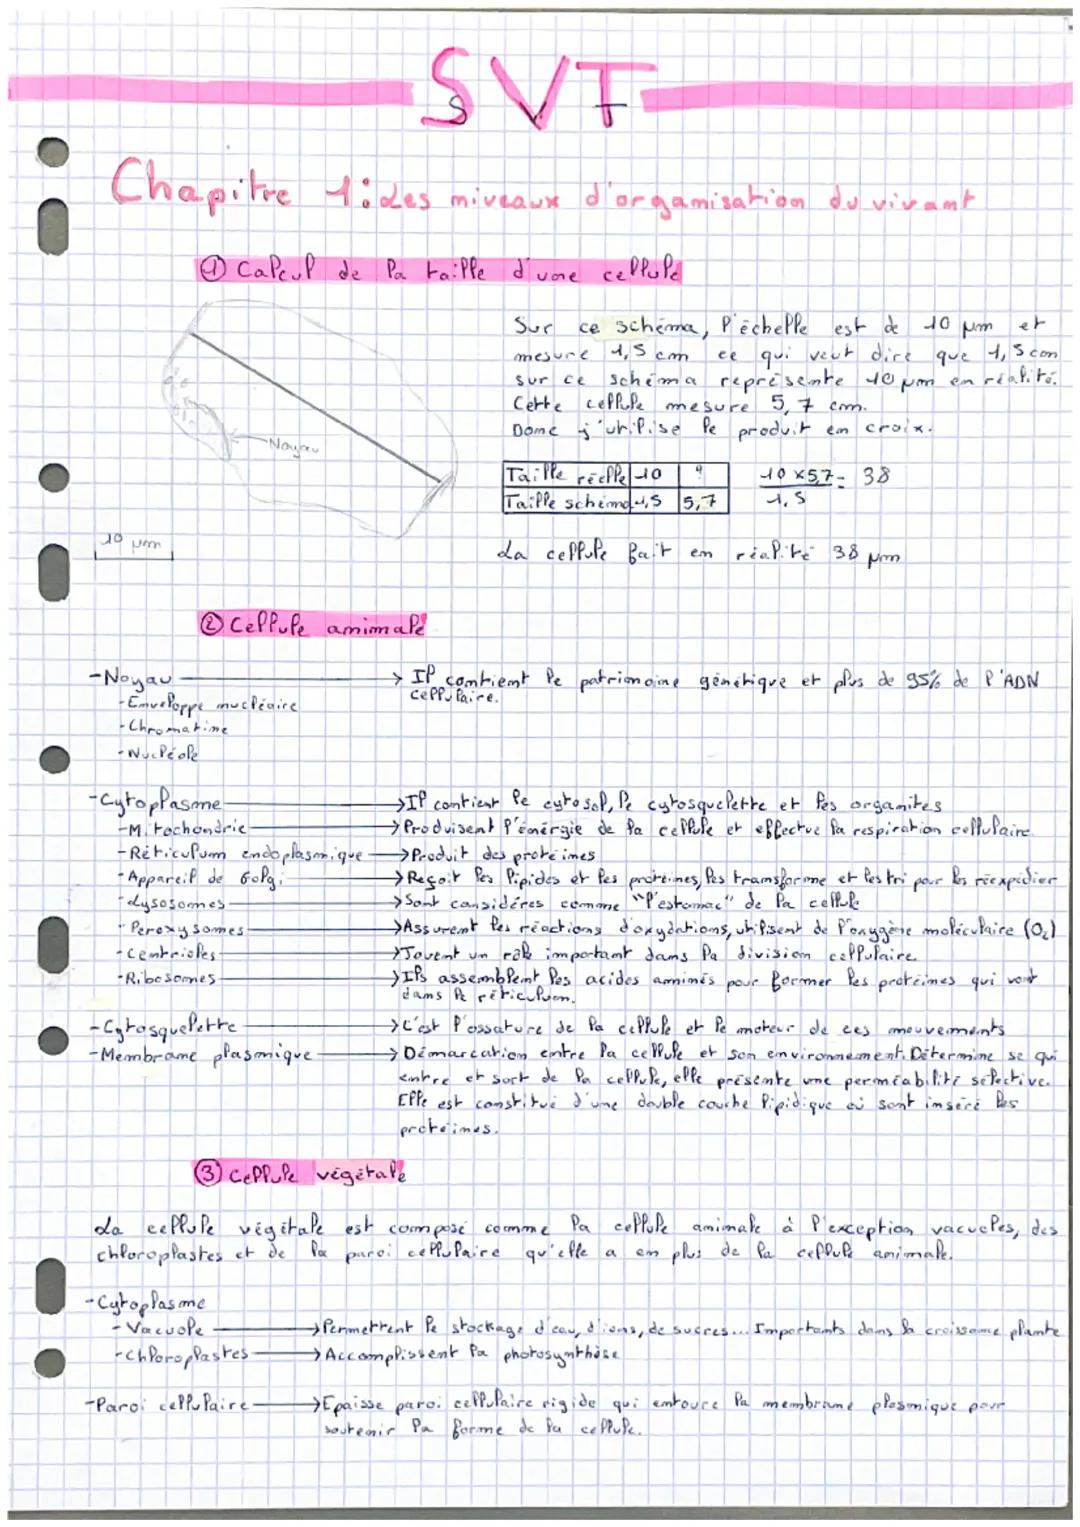 SVT
Chapitre 1: Les niveaux d'organisation du vivant
① Calcul de la taille d'une cellule
Sur ce schéma, l'échelle est de 10 µm et
mesure 1,5 cm ce qui veut dire que 1,5 cm
sur ce schéma représente 10 µm en réalité.
Cette cellule mesure 5,7 cm.
Donc j'utilise le produit en croix.
Noyau
Taille réelle 10 ?
Taille schéma 1,5 5,7
10 x 5,7 = 38
1,5
10 µm
La cellule fait en réalité 38 µm
② Cellule animale
- Noyau → Il contient le patrimoine génétique et plus de 95% de l'ADN
cellulaire.
- Enveloppe nucléaire
- Chromatine
- Nucléole
- Cytoplasme → Il contient le cytosol, le cytosquelette et les organites
- Mitochondrie → Produisent l'énergie de la cellule et effectue la respiration cellulaire
- Réticulum endoplasmique → Produit des protéines
- Appareil de Golgi → Reçoit les lipides et les protéines, les transforme et les tri pour les réexpédier
- Lysosomes → Sont considérés comme "l'estomac" de la cellule
- Peroxysomes → Assurent les réactions d'oxydations, utilisent de l'oxygène moléculaire (O2)
- Centrioles → Jouent un rôle important dans la division cellulaire
- Ribosomes → Ils assemblent les acides aminés pour former les protéines qui vont
dans le réticulum.
- Cytosquelette → C'est l'ossature de la cellule et le moteur de ces mouvements
- Membrane plasmique → Démarcation entre la cellule et son environnement. Détermine se qui
entre et sort de la cellule, elle présente une perméabilité sélective.
Elle est constitué d'une double couche lipidique où sont inséré les
protéines.
③ Cellule végétale
La cellule végétale est composé comme la cellule animale à l'exception vacuoles, des
chloroplastes et de la paroi cellulaire qu'elle a en plus de la cellule animale.
- Cytoplasme
- Vacuole → Permettent le stockage d'eau, d'ions, de sucres... Importants dans la croissance plante
- Chloroplastes → Accomplissent la photosynthèse
- Paroi cellulaire → Epaisse paroi cellulaire rigide qui entoure la membrane plasmique pour
soutenir la forme de la cellule.